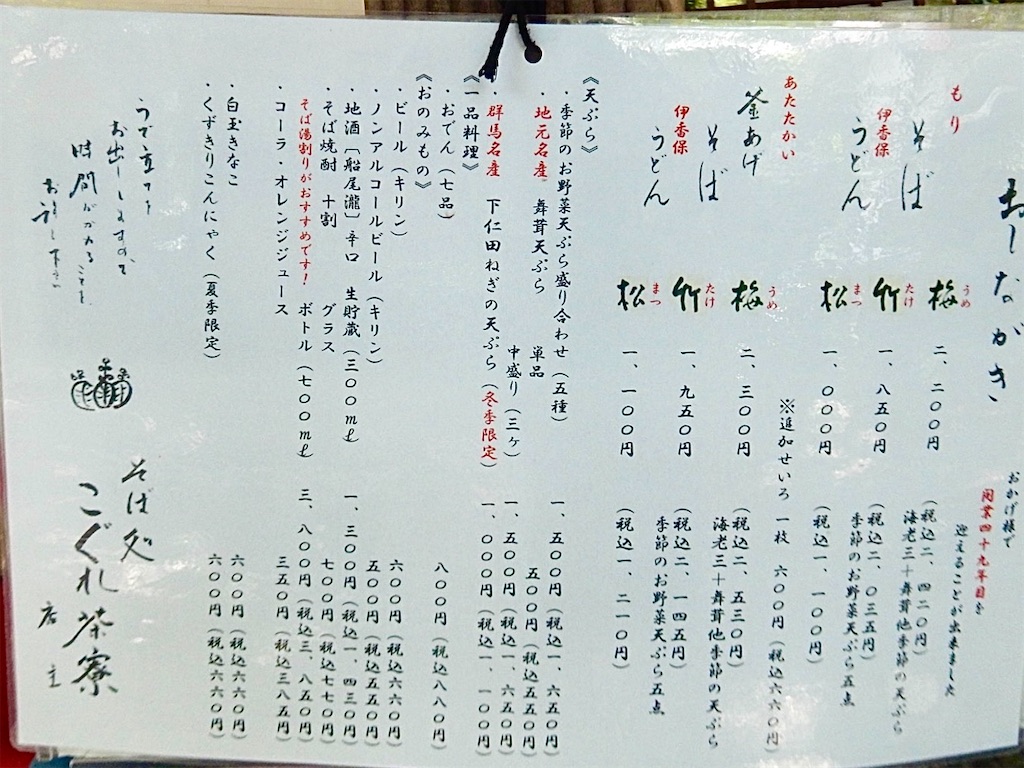 おしながき
おかげ様で
開業四十九年目を
迎えることが出来ました
もり
そば
伊香保
うどん
梅 うめ 二、二〇〇円 (税込二、四二〇円)
海老三+舞茸他季節の天ぷら
竹 たけ 一、八五〇円 (税込二、〇三五円)
季節のお野菜天ぷら五点
松 まつ 一、〇〇〇円 (税込一、一〇〇円)
※追加せいろ 一枚 六〇〇円 (税込六六〇円)
あたたかい
釜あげ
そば
伊香保
うどん
梅 うめ 二、三〇〇円 (税込二、五三〇円)
海老三+舞茸他季節の天ぷら
竹 たけ 一、九五〇円 (税込二、一四五円)
季節のお野菜天ぷら五点
松 まつ 一、一〇〇円 (税込一、二一〇円)
《天ぷら》
・季節のお野菜天ぷら盛り合わせ (五種) 一、五〇〇円 (税込一、六五〇円)
・地元名産 舞茸天ぷら 単品 五〇〇円 (税込五五〇円)
中盛り (三ヶ) 一、五〇〇円 (税込一、六五〇円)
・群馬名産 下仁田ねぎの天ぷら (冬季限定) 一、〇〇〇円 (税込一、一〇〇円)
《一品料理》
・おでん (七品) 八〇〇円 (税込八八〇円)
《おのみもの》
・ビール (キリン) 六〇〇円 (税込六六〇円)
・ノンアルコールビール (キリン) 五〇〇円 (税込五五〇円)
・地酒 〔船尾瀧〕 辛口 生貯蔵 (三〇〇ml) 一、三〇〇円 (税込一、四三〇円)
・そば焼酎 十割 グラス 七〇〇円 (税込七七〇円)
そば湯割りがおすすめです! ボトル (七〇〇ml) 三、八〇〇円 (税込三、八五〇円)
・コーラ・オレンジジュース 三五〇円 (税込三八五円)
・白玉きなこ 六〇〇円 (税込六六〇円)
・くずきりこんにゃく (夏季限定) 六〇〇円 (税込六六〇円)
うで立てを
お出ししますので
時間がかかることを
お許し下さい
そば処
こぐれ茶寮
店主